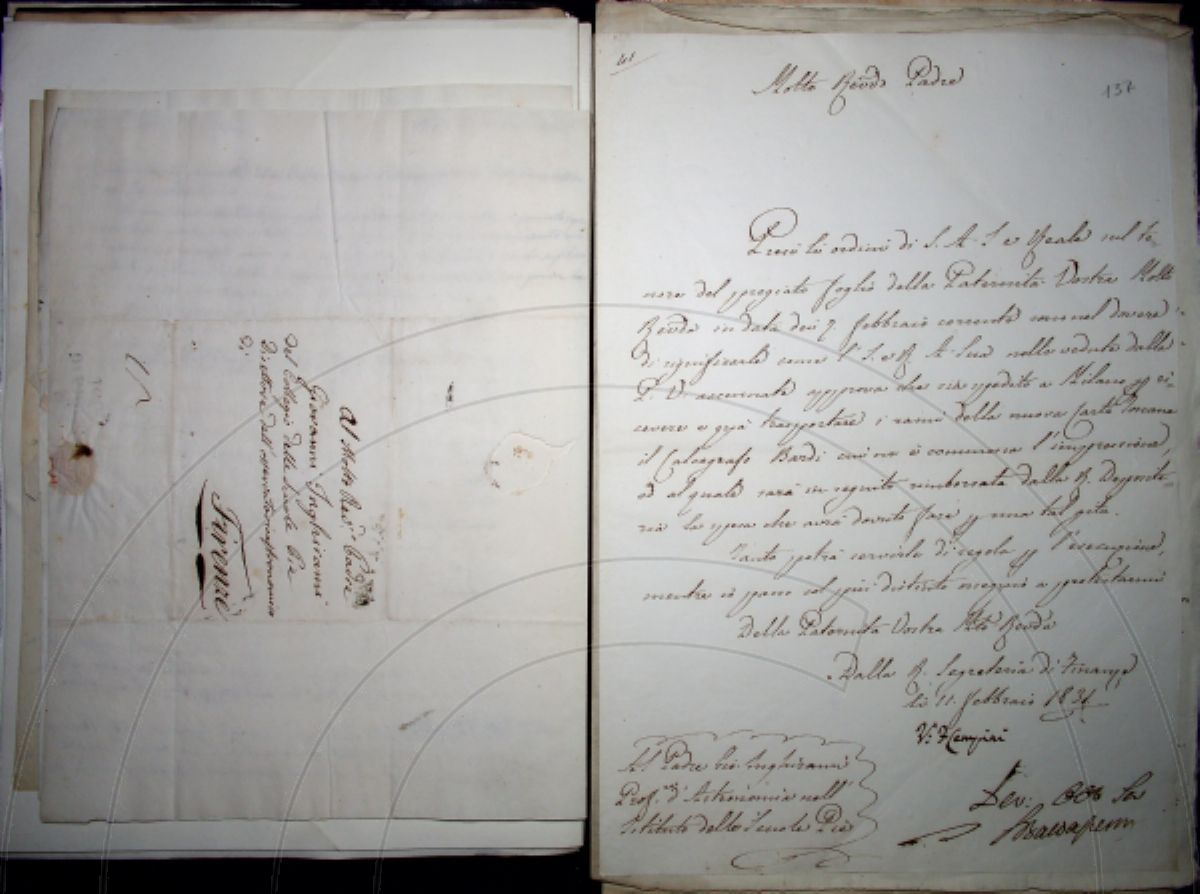 Al Molto Rev.do Padre
Giovanni Inghirami
del Collegio delle Scuole Pie
Direttore dell'osservatorio astronomico
di
Firenze
137
Molto Revdo Padre
Presi li ordini di S. A. I e Reale sul te-
nore del pregiato foglio della Paternità Vostra Molto
Revda in data dei 7. febbraio corrente sono nel dovere
di significarle come l'I. e R. A. Sua nelle vedute dalla
P. V. accennate approva che sia spedito a Milano p ri-
cevere e quà trasportare i rami della nuova Carta Toscana
il Calcografo Bardi cui ne è commessa l'impressione,
ed al quale sarà in seguito rimborsata dalla R. Deposite-
ria la spesa che avrà dovuto fare p una tal gita.
Tanto potrà servirle di regola p l'esecuzione,
mentre io passo col più distinto ossequio a protestarmi
Della Paternità Vostra Mto Revda
Dalla R. Segreteria di Finanze
li 11. febbraio 1831
V: F Cempini
Al Padre Gio Inghirami
Prof.re d'Astronomia nell'
Istituto delle Scuole Pie
Dev: Obb Ser